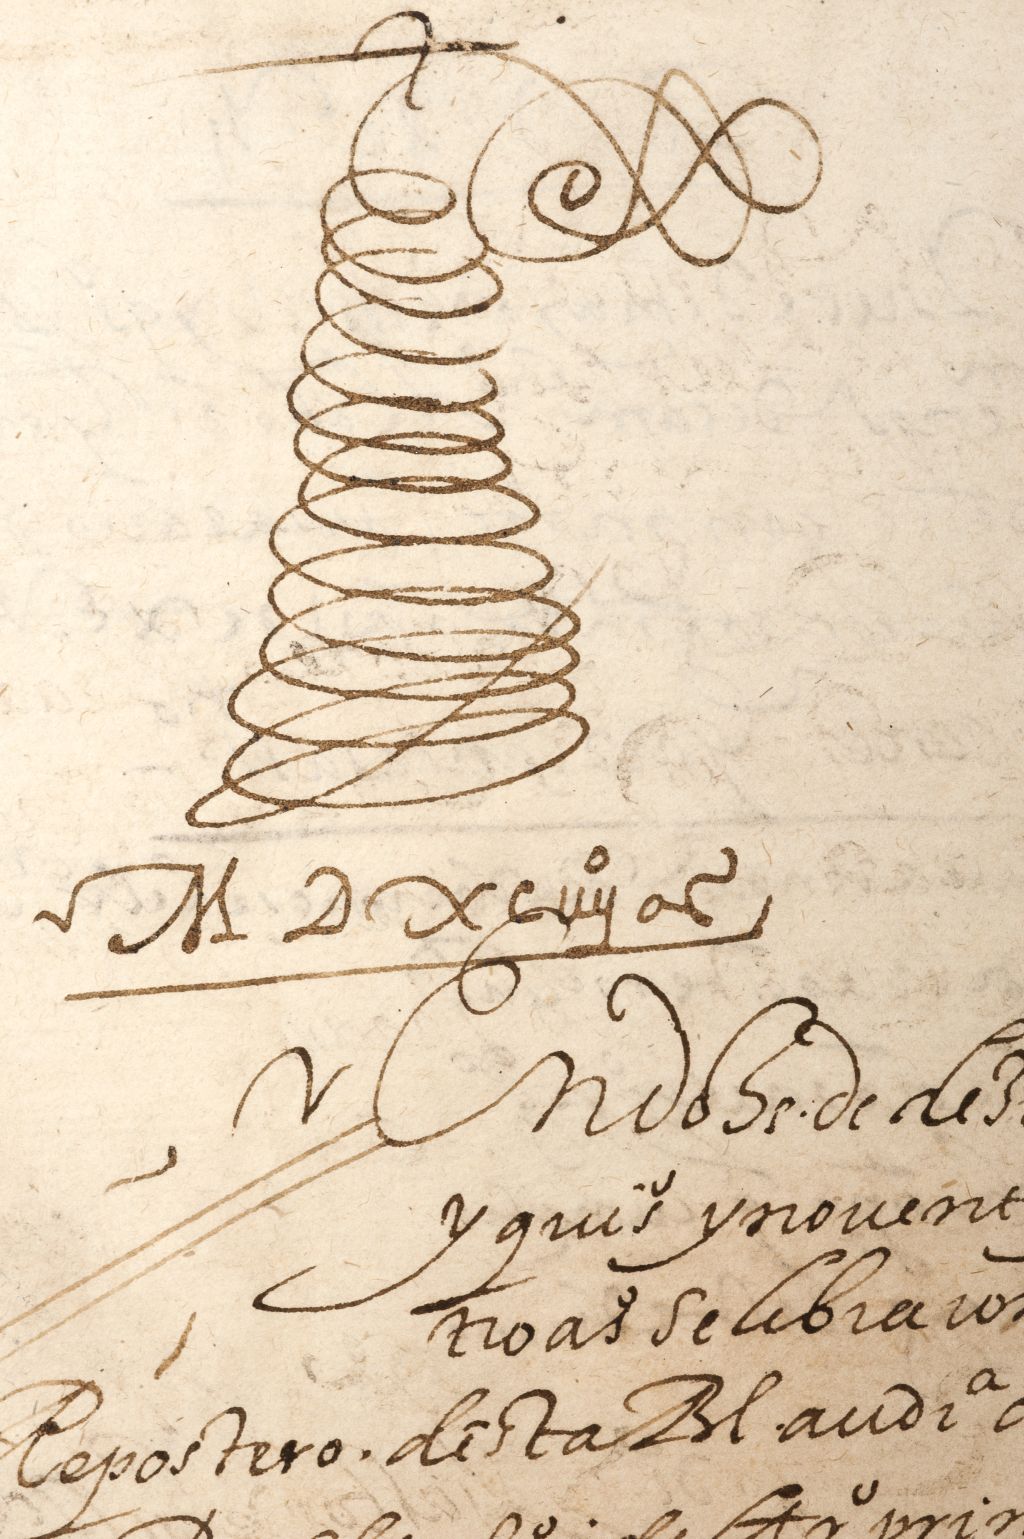 M D XCiiij os
En doze de dez
y quisº y nouent
tro as se libraron
Repostero. desta Rl. audiª